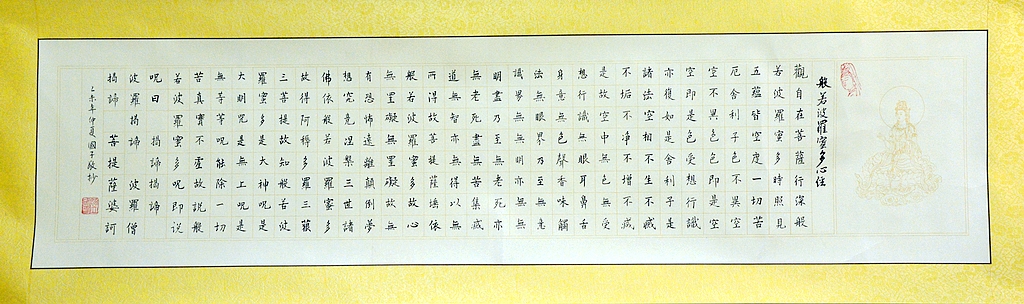 般若波羅蜜多心经
觀自在菩薩行深般
若波羅蜜多時照見
五蘊皆空度一切苦
厄舍利子色不異空
空不異色色即是空
空即是色受想行識
亦復如是舍利子是
諸法空相不生不滅
不垢不净不增不減
是故空中無色無受
想行識無眼耳鼻舌
身意無色聲香味觸
法無眼界乃至無意
識界無無明亦無無
明盡乃至無老死亦
無老死盡無苦集滅
道無智亦無得以無
所得故菩提薩埵依
般若波羅蜜多故心
無罣礙無罣礙故無
有恐怖遠離顛倒夢
想究竟涅槃三世諸
佛依般若波羅蜜多
故得阿耨多羅三藐
三菩提故知般若波
羅蜜多是大神呪是
大明呪是無上呪是
無等等呪能除一切
苦真實不虛故說般
若波羅蜜多呪即說
呪曰 揭諦揭諦
波羅揭諦 波羅僧
揭諦 菩提薩婆訶
乙未年仲夏國子敬抄